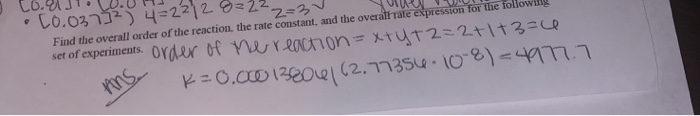 • [0.037]²) 4=2² | 2 8=2² 2=3
Find the overall order of the reaction, the rate constant, and the overall rate expression for the following
set of experiments. Order of the reaction = x+y+z=2+1+3=6
ans K=0.00013806/(2.77356·10-8)=4977.7